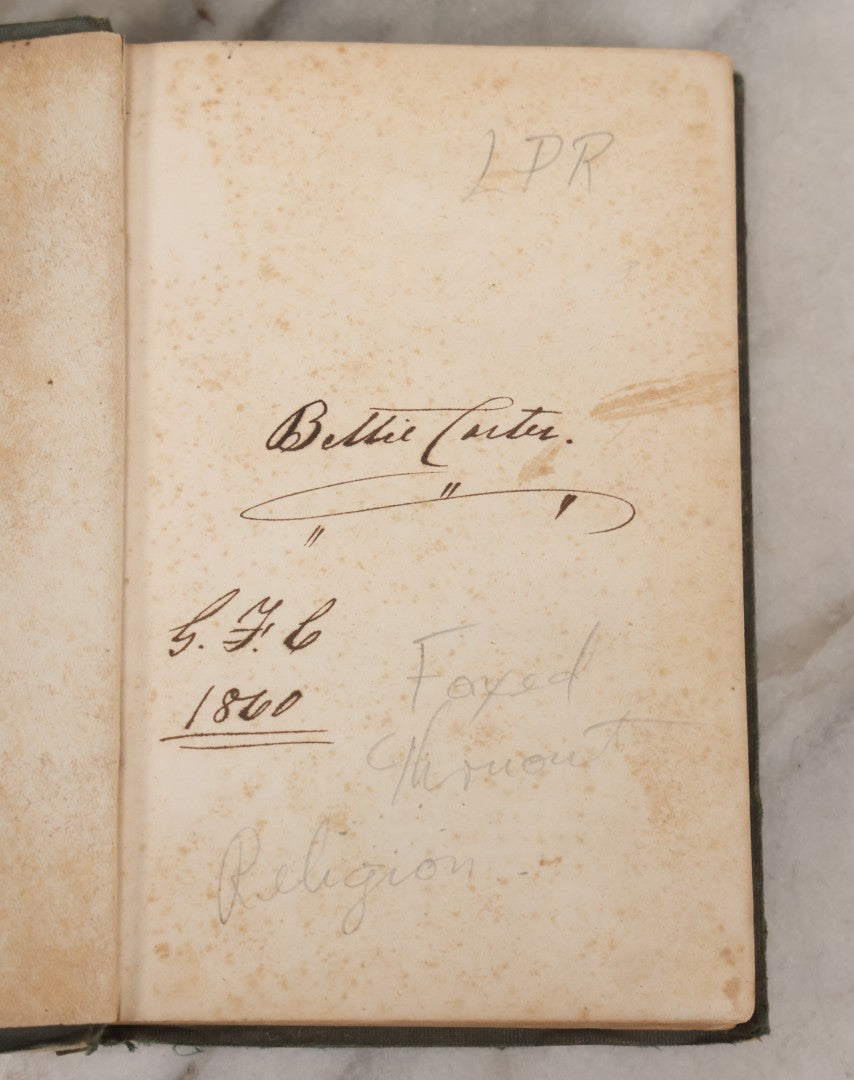 LPR
Bettie Carter.
G. F. C
1860
Foxed
thruout
Religion